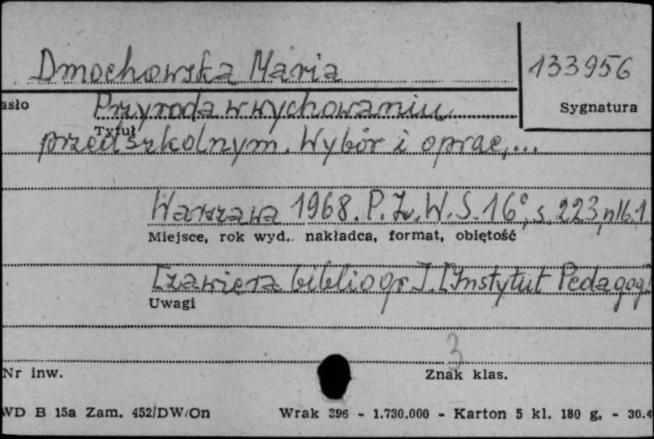 Dmochowska Maria
133956
asło
Przyroda w wychowaniu
Sygnatura
Tytuł
przedszkolnym. Wybór i oprac,...
Warszawa 1968. P.Z.W.S. 16°, s. 223, nlb.1
Miejsce, rok wyd.. nakładca, format, objętość
[zawiera bibliogr.]. [Instytut Pedagog.
Uwagi
3
Nr inw.
Znak klas.
WD B 15a Zam. 452/DW/On
Wrak 396 - 1.730.000 - Karton 5 kl. 180 g. - 30.4